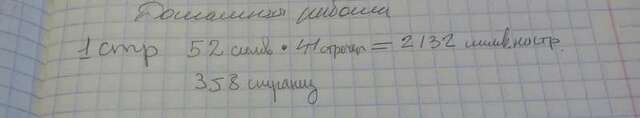 Домашняя работа
1 стр 52 симв • 41 строчка = 2132 символ на стр.
358 страниц